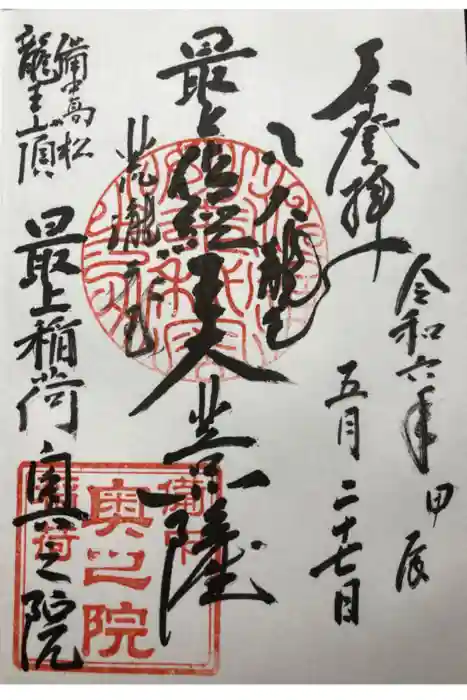 奉登拝
令和六年甲辰
五月二十七日
八大龍王
最上位経王大菩薩
備中高松
龍王山頂
最上稲荷奥之院
備中
奥之院
稲荷